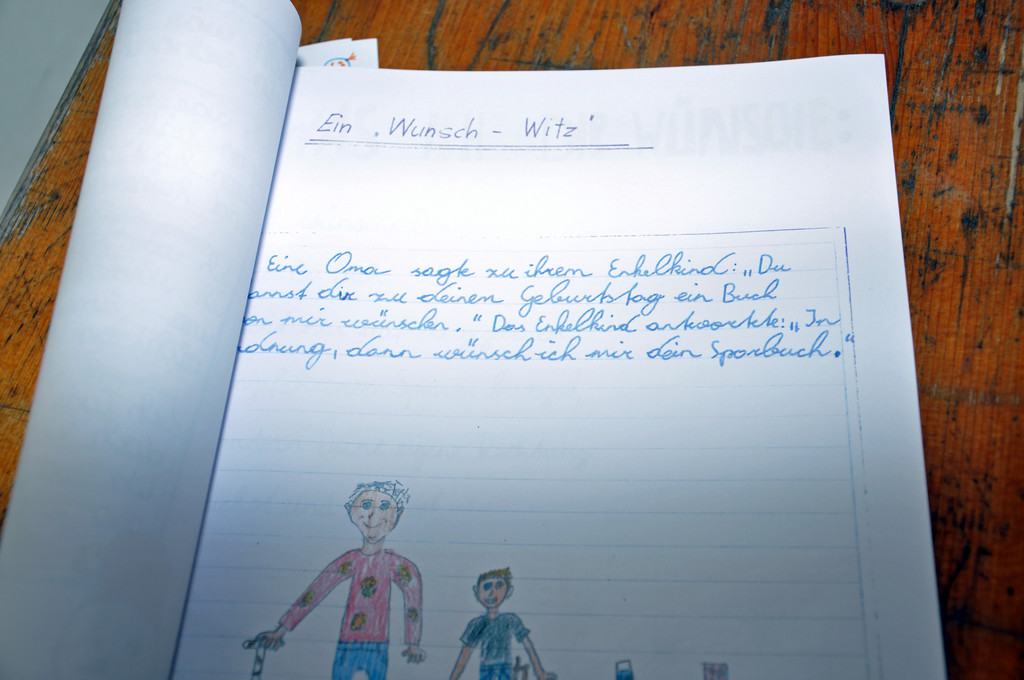 Ein „Wunsch - Witz"
Eine Oma sagte zu ihrem Enkelkind: „Du
annst dir zu deinem Geburtstag ein Buch
on mir wünschen." Das Enkelkind antwortete: „In
dnung, dann wünsch ich mir dein Sparbuch."